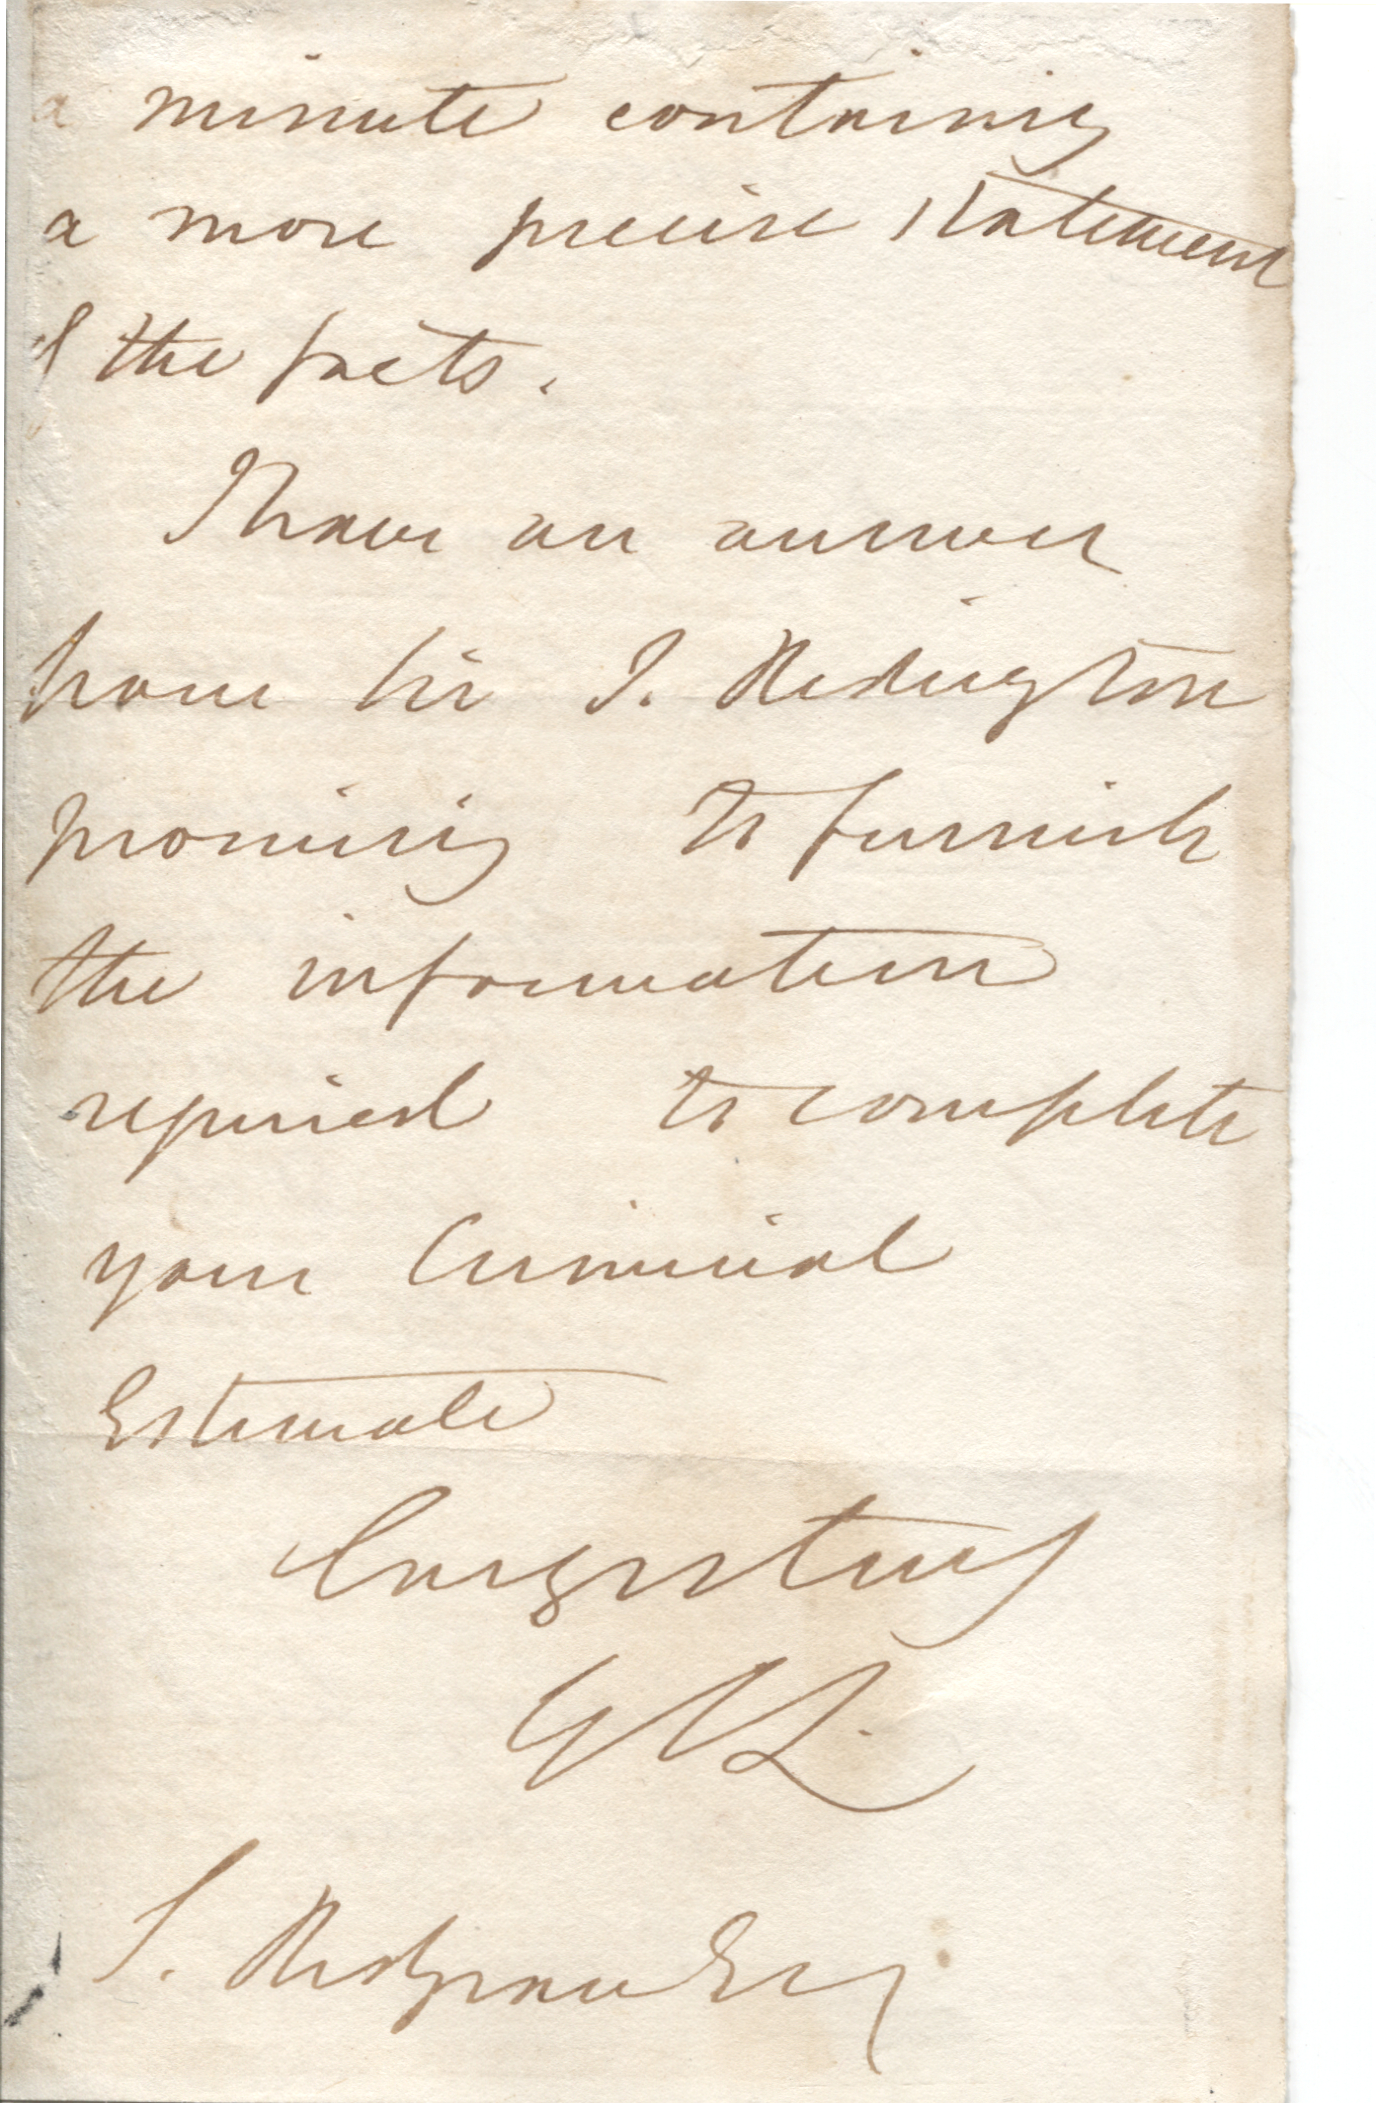 a minute containing
a more precise statement
of the facts.
I have an answer
from Sir T. Redington
promising to furnish
the information
required to complete
your Criminal
Estimate
GCL
S. Redgrave Esq